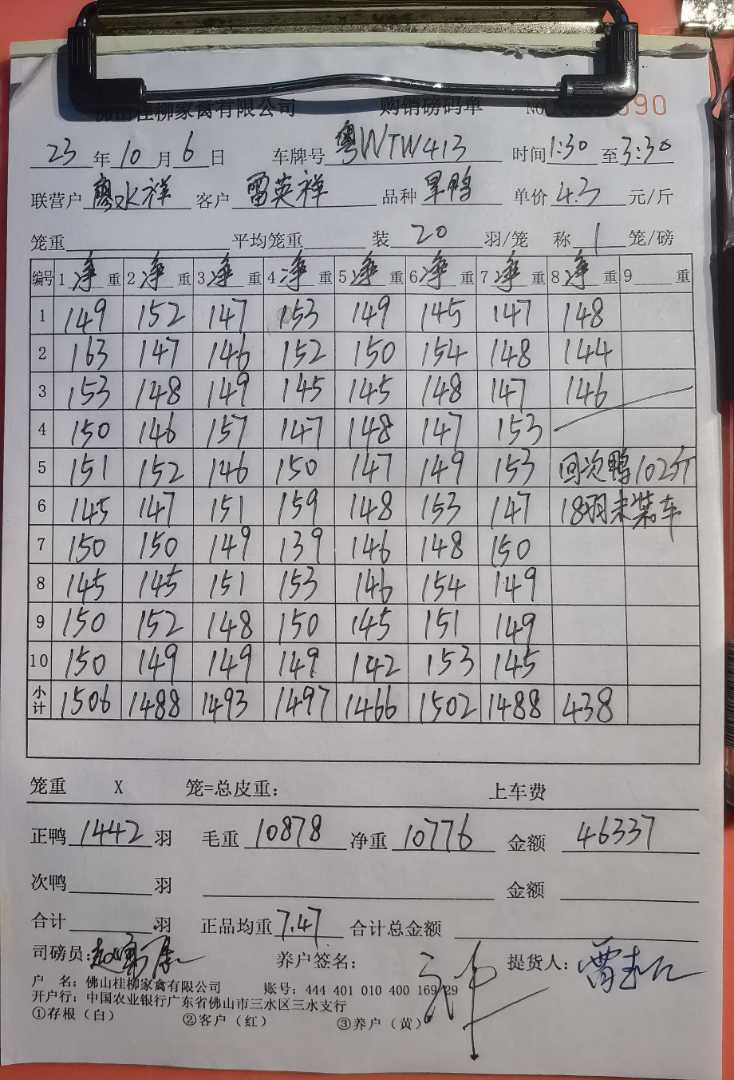 佛山桂柳家禽有限公司 购销磅码单 NO 090
23 年 10 月 6 日 车牌号 粤WTW413 时间 1:30 至 3:30
联营户 廖水祥 客户 雷英祥 品种 旱鸭 单价 4.3 元/斤
笼重 平均笼重 装 20 羽/笼 称 1 笼/磅
编号 1 净 重 2 净 重 3 净 重 4 净 重 5 净 重 6 净 重 7 净 重 8 净 重 9 重
1 149 152 147 153 149 145 147 148
2 163 147 146 152 150 154 148 144
3 153 148 149 145 145 148 147 146
4 150 146 157 147 148 147 153
5 151 152 146 150 147 149 153 回次鸭102斤
6 145 147 151 159 148 153 147 18羽未装车
7 150 150 149 139 146 148 150
8 145 145 151 153 146 154 149
9 150 152 148 150 145 151 149
10 150 149 149 149 142 153 145
小计 1506 1488 1493 1497 1466 1502 1488 438
笼重 X 笼=总皮重: 上车费
正鸭 1442 羽 毛重 10878 净重 10776 金额 46337
次鸭 羽 金额
合计 羽 正品均重 7.47 合计总金额
司磅员: 养户签名: 提货人:
户 名: 佛山桂柳家禽有限公司 账号: 444 401 010 400 169 29
开户行: 中国农业银行广东省佛山市三水区三水支行
①存根（白） ②客户（红） ③养户（黄）